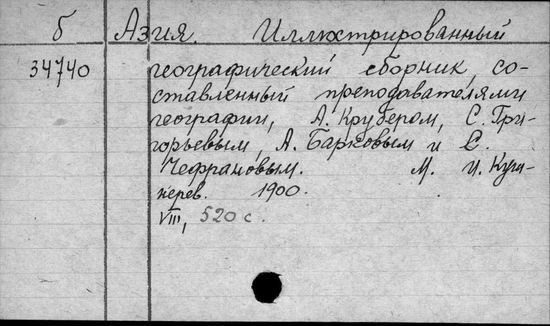 Б Азия. Иллюстрированный
34740 географический сборник, со-
ставленный преподавателями
географии, А. Крубером, С. Гри-
горьевым, А. Барковым и С.
Чефрановым. М. И. Куш-
нерев. 1900.
VIII, 520 с.